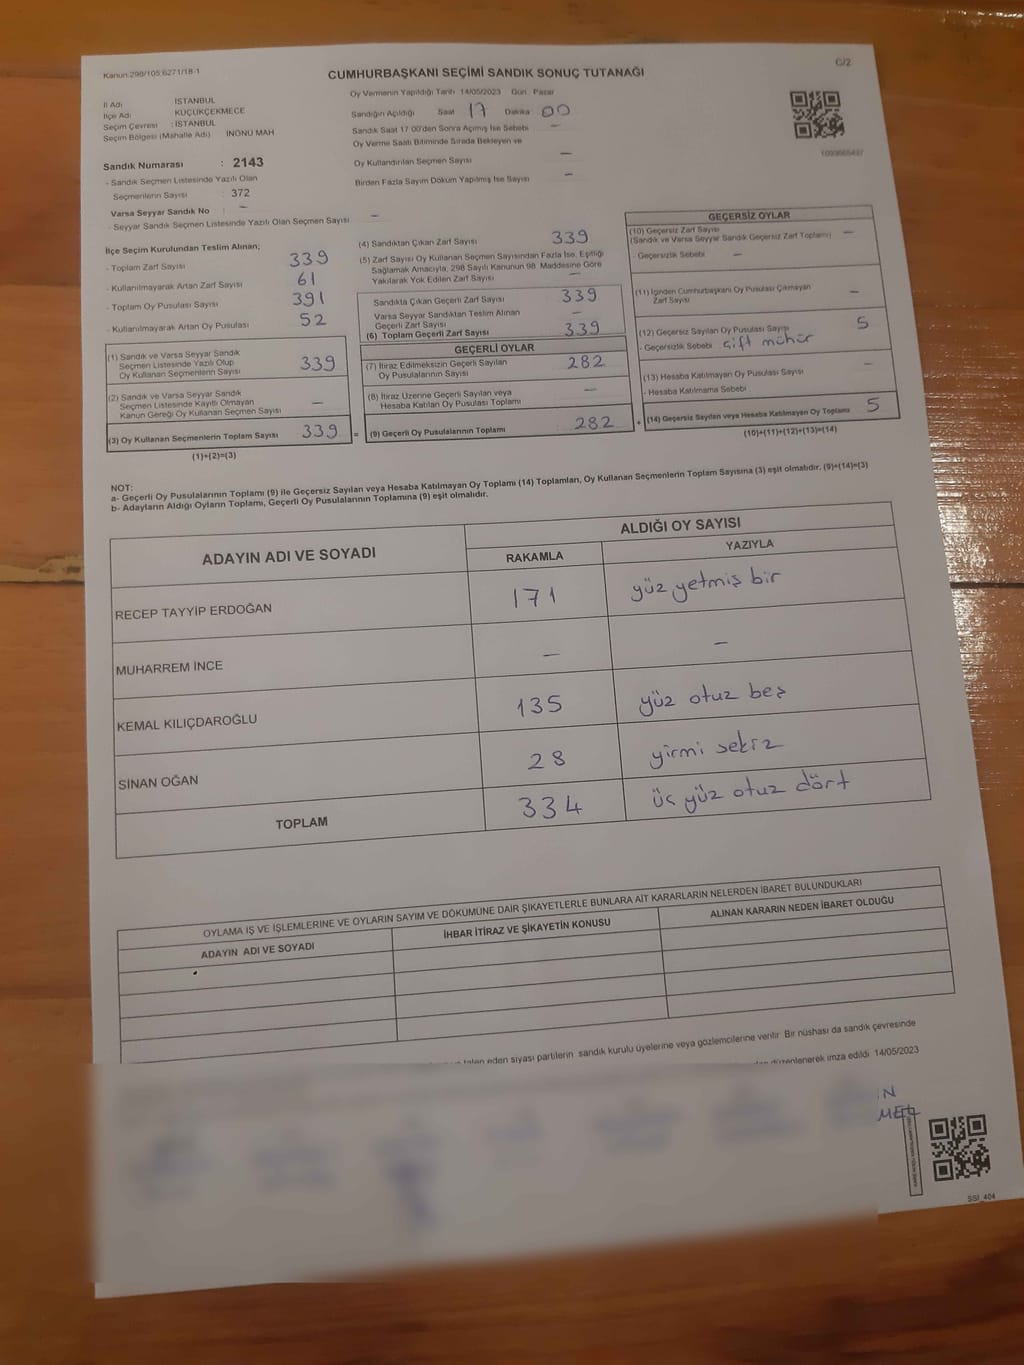 Kanun:298/105,6271/18-1
C/2
CUMHURBAŞKANI SEÇİMİ SANDIK SONUÇ TUTANAĞI
İl Adı : İSTANBUL
İlçe Adı : KÜÇÜKÇEKMECE
Seçim Çevresi : İSTANBUL
Seçim Bölgesi (Mahalle Adı) : İNÖNÜ MAH
Sandık Numarası : 2143
- Sandık Seçmen Listesinde Yazılı Olan
Seçmenlerin Sayısı : 372
Varsa Seyyar Sandık No : –
- Seyyar Sandık Seçmen Listesinde Yazılı Olan Seçmen Sayısı –
Oy Vermenin Yapıldığı Tarih 14/05/2023 Gün : Pazar
Sandığın Açıldığı Saat 17 Dakika 00
Sandık Saat 17:00'den Sonra Açımış İse Sebebi –
Oy Verme Saati Bitiminde Sırada Bekleyen ve
Oy Kullandırılan Seçmen Sayısı –
Birden Fazla Sayım Döküm Yapılmış İse Sayısı –
İlçe Seçim Kurulundan Teslim Alınan;
- Toplam Zarf Sayısı 339
- Kullanılmayarak Artan Zarf Sayısı 61
- Toplam Oy Pusulası Sayısı 391
- Kullanılmayarak Artan Oy Pusulası 52
(1) Sandık ve Varsa Seyyar Sandık
Seçmen Listesinde Yazılı Olup
Oy Kullanan Seçmenlerin Sayısı 339
(2) Sandık ve Varsa Seyyar Sandık
Seçmen Listesinde Kayıtlı Olmayan
Kanun Gereği Oy Kullanan Seçmen Sayısı –
(3) Oy Kullanan Seçmenlerin Toplam Sayısı 339 =
(1)+(2)=(3)
(4) Sandıktan Çıkan Zarf Sayısı 339
(5) Zarf Sayısı Oy Kullanan Seçmen Sayısından Fazla İse, Eşitliği
Sağlamak Amacıyla, 298 Sayılı Kanunun 98. Maddesine Göre
Yakılarak Yok Edilen Zarf Sayısı –
Sandıkta Çıkan Geçerli Zarf Sayısı 339
Varsa Seyyar Sandıktan Teslim Alınan
Geçerli Zarf Sayısı –
(6) Toplam Geçerli Zarf Sayısı 339
GEÇERLİ OYLAR
(7) İtiraz Edilmeksizin Geçerli Sayılan
Oy Pusulalarının Sayısı 282
(8) İtiraz Üzerine Geçerli Sayılan veya
Hesaba Katılan Oy Pusulası Toplamı –
(9) Geçerli Oy Pusulalarının Toplamı : 282 +
GEÇERSİZ OYLAR
(10) Geçersiz Zarf Sayısı
(Sandık ve Varsa Seyyar Sandık Geçersiz Zarf Toplamı) –
- Geçersizlik Sebebi –
(11) İçinden Cumhurbaşkanı Oy Pusulası Çıkmayan
Zarf Sayısı –
(12) Geçersiz Sayılan Oy Pusulası Sayısı 5
- Geçersizlik Sebebi çift mühür
(13) Hesaba Katılmayan Oy Pusulası Sayısı –
- Hesaba Katılmama Sebebi
(14) Geçersiz Sayılan veya Hesaba Katılmayan Oy Toplamı 5
(10)+(11)+(12)+(13)=(14)
NOT:
a- Geçerli Oy Pusulalarının Toplamı (9) ile Geçersiz Sayılan veya Hesaba Katılmayan Oy Toplamı (14) Toplamları, Oy Kullanan Seçmenlerin Toplam Sayısına (3) eşit olmalıdır. (9)+(14)=(3)
b- Adayların Aldığı Oyların Toplamı, Geçerli Oy Pusulalarının Toplamına (9) eşit olmalıdır.
ADAYIN ADI VE SOYADI
ALDIĞI OY SAYISI
RAKAMLA YAZIYLA
RECEP TAYYİP ERDOĞAN 171 yüz yetmiş bir
MUHARREM İNCE – –
KEMAL KILIÇDAROĞLU 135 yüz otuz beş
SİNAN OĞAN 28 yirmi sekiz
TOPLAM 334 üç yüz otuz dört
OYLAMA İŞ VE İŞLEMLERİNE VE OYLARIN SAYIM VE DÖKÜMÜNE DAİR ŞİKAYETLERLE BUNLARA AİT KARARLARIN NELERDEN İBARET BULUNDUKLARI
ADAYIN ADI VE SOYADI İHBAR İTİRAZ VE ŞİKAYETİN KONUSU ALINAN KARARIN NEDEN İBARET OLDUĞU
talep eden siyasi partilerin sandık kurulu üyelerine veya gözlemcilerine verilir. Bir nüshası da sandık çevresinde
düzenlenerek imza edildi. 14/05/2023
SSI_404